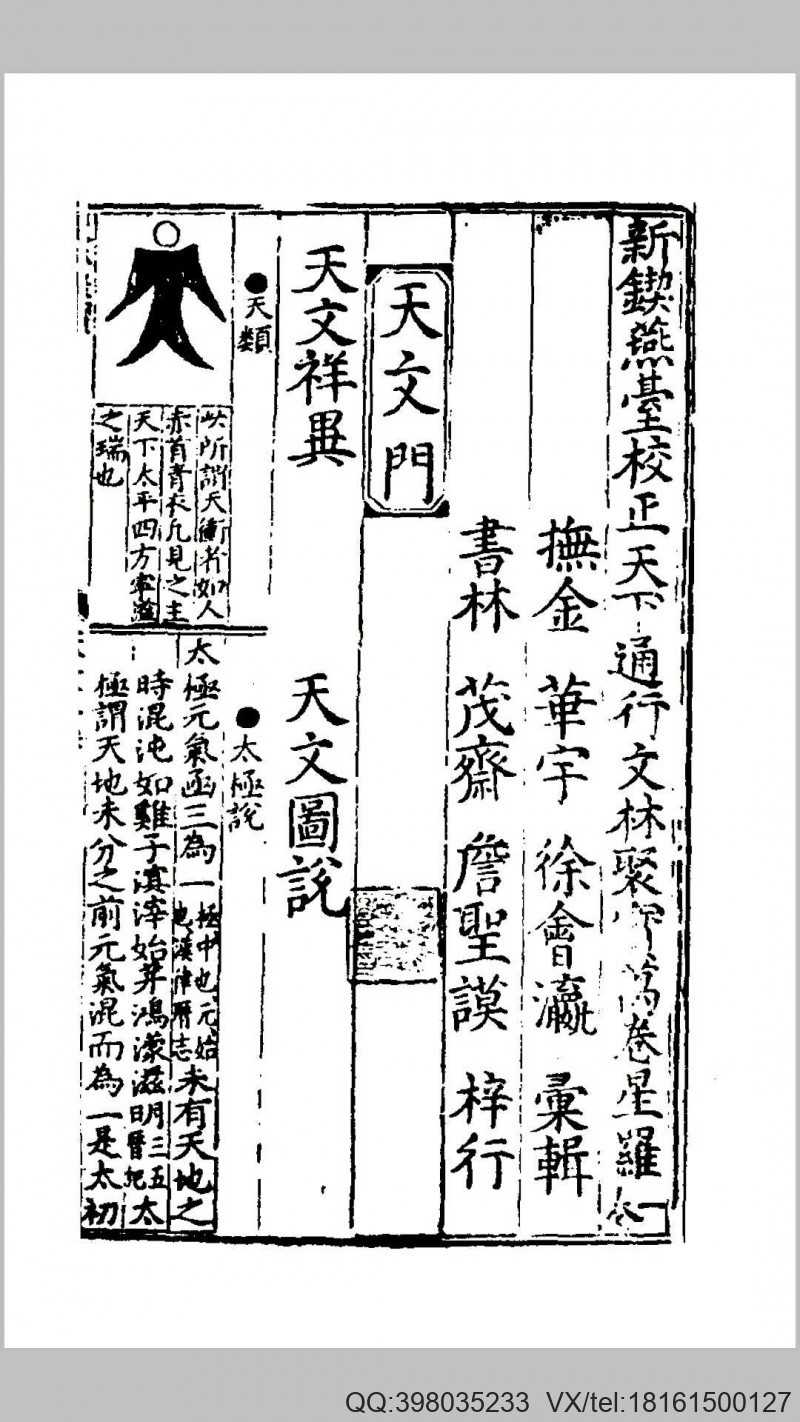 新鍥燕臺校正天下通行文林聚寶萬卷星羅卷一
撫金 華宇 徐會瀛 彙輯
書林 茂齋 詹聖謨 梓行
天文門
天文祥異
●天類
此所謂天衝者如人
赤首青衣凡見之主
天下太平四方寧謐
之瑞也
天文圖說
●太極說
太極元氣函三為一極中也元始也漢律曆志未有天地之
時混沌如雞子溟涬始芽鴻濛滋明三五曆紀太
極謂天地未分之前元氣混而為一是太初
QQ:398035233 VX/tel:18161500127